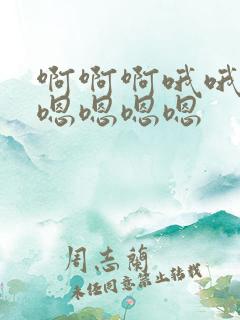 啊啊啊哦哦
嗯嗯嗯嗯
周志蘭
未经同意禁止转载